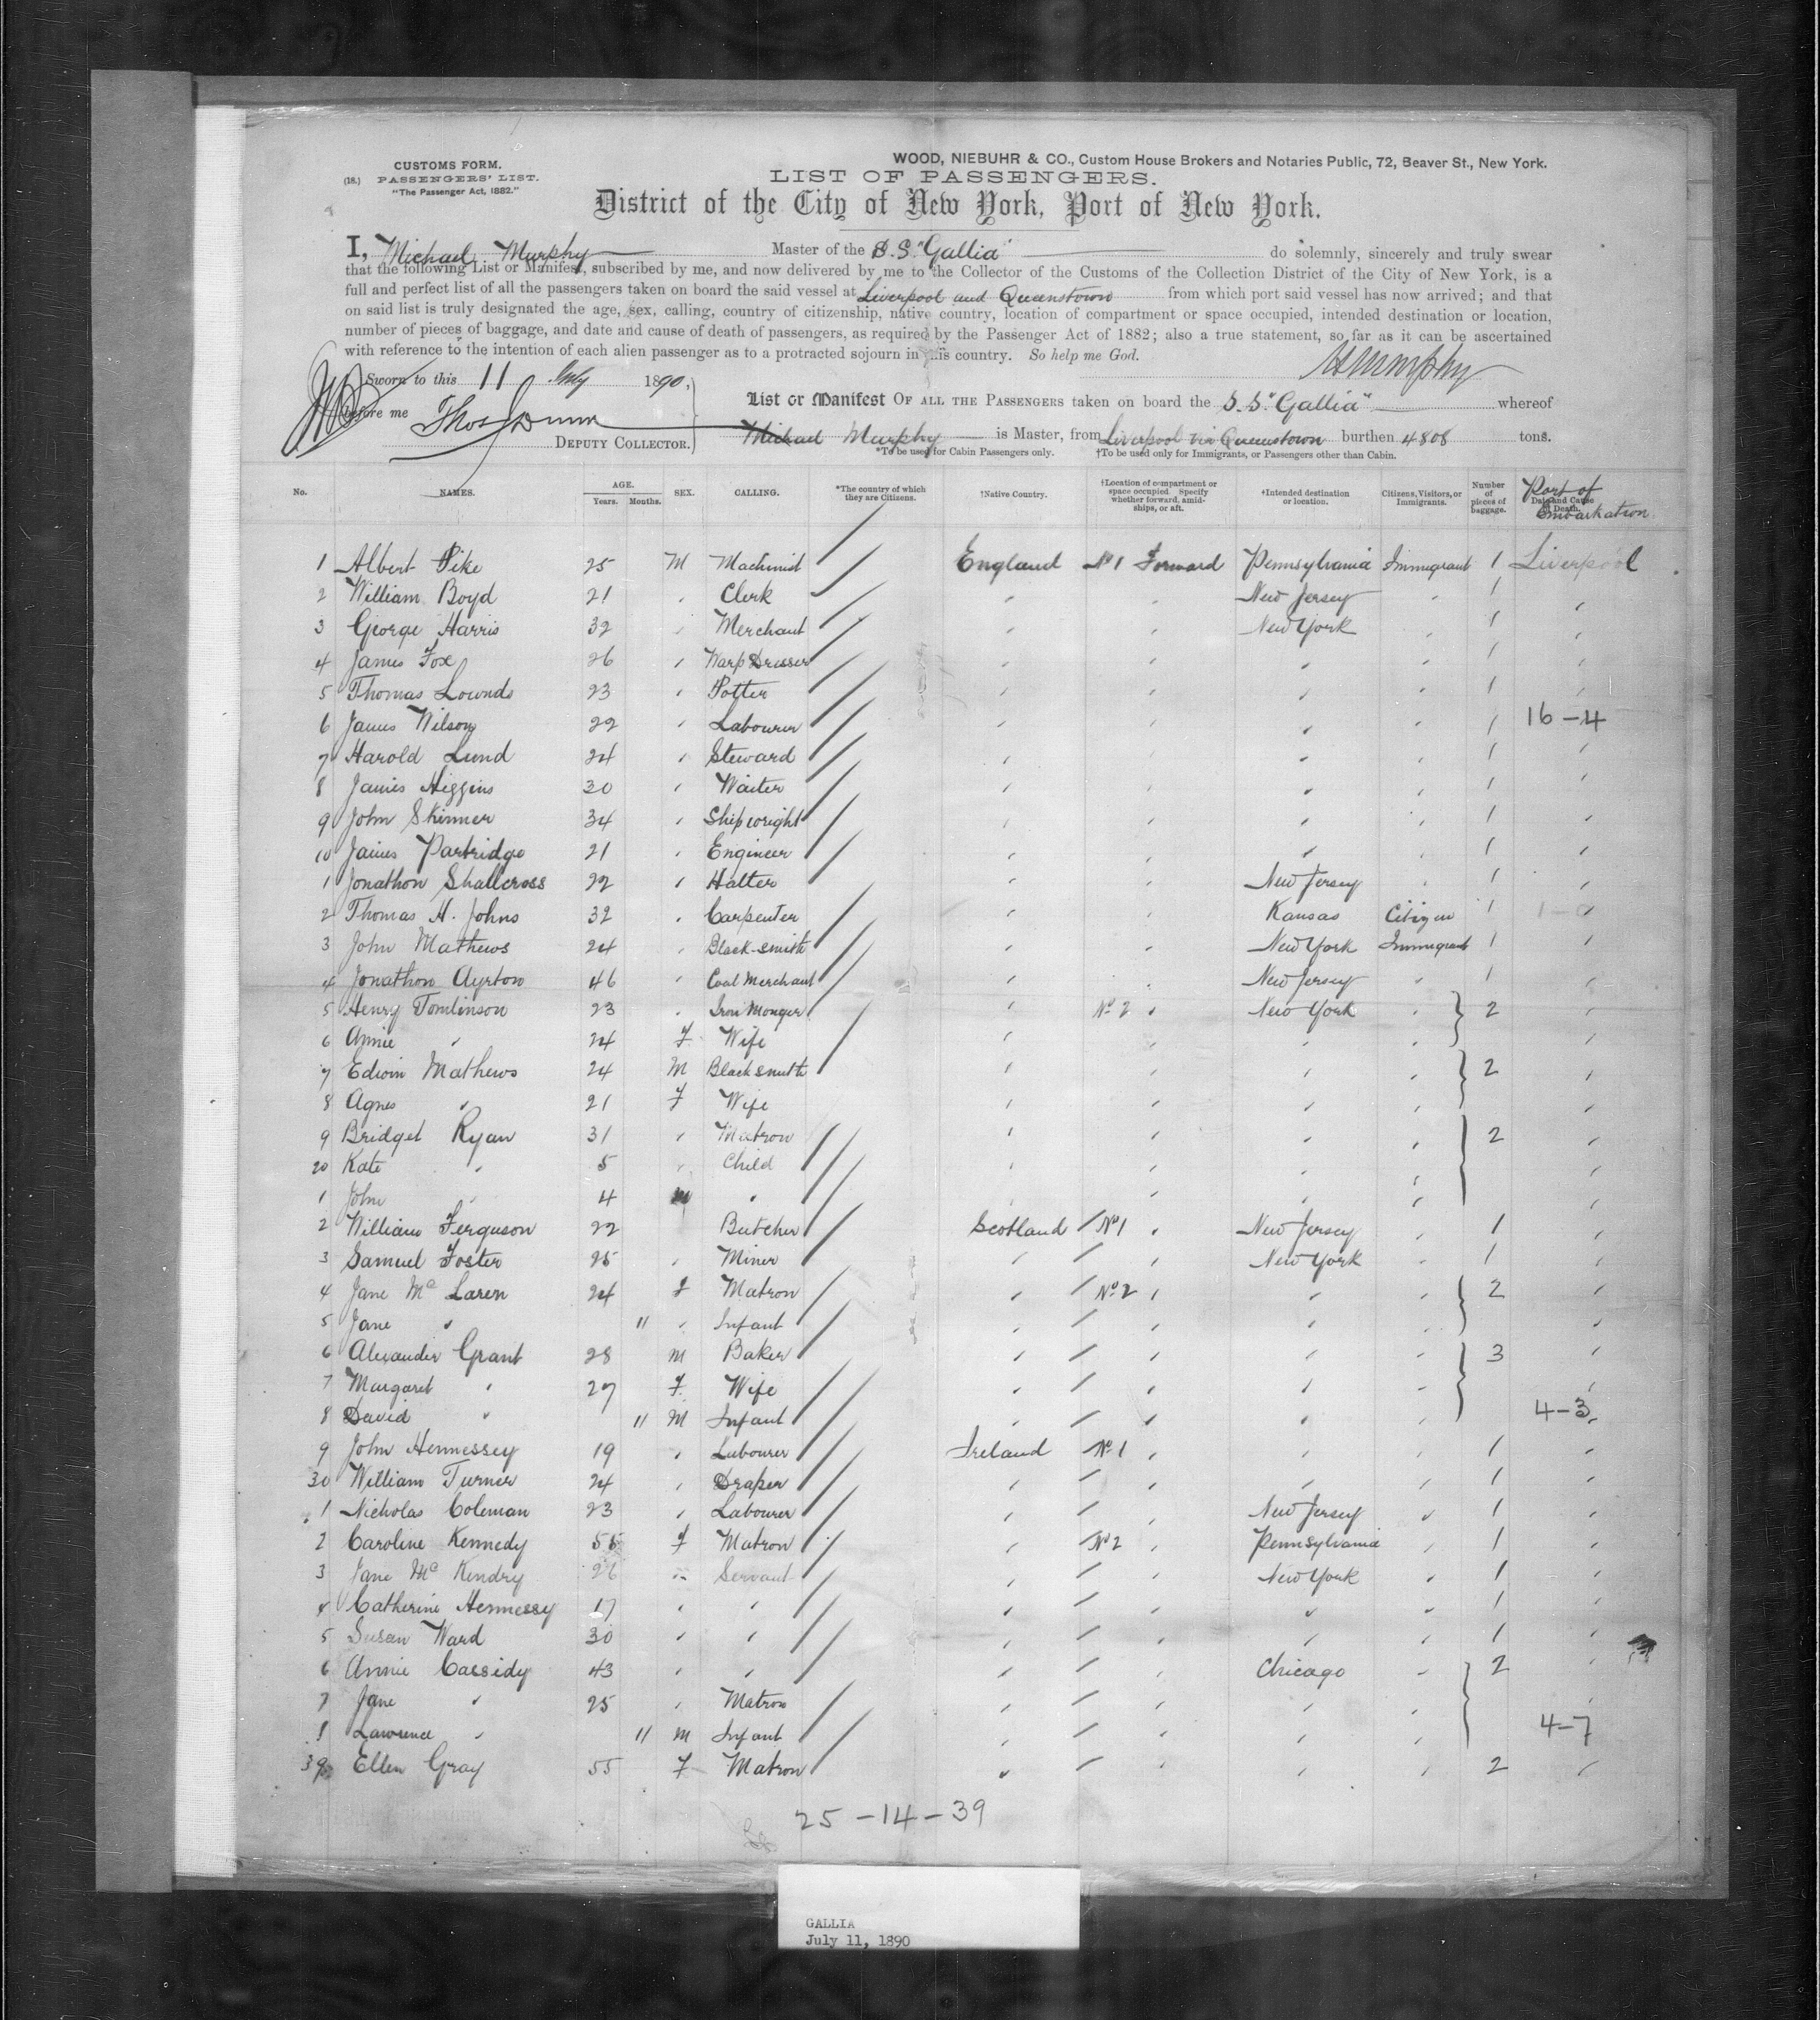 WOOD, NIEBUHR & CO., Custom House Brokers and Notaries Public, 72, Beaver St., New York.
CUSTOMS FORM.
(18.) PASSENGERS' LIST.
"The Passenger Act, 1882."
LIST OF PASSENGERS.
District of the City of New York, Port of New York.
I, Michael Murphy Master of the S.S. "Gallia" do solemnly, sincerely and truly swear
that the following List or Manifest, subscribed by me, and now delivered by me to the Collector of the Customs of the Collection District of the City of New York, is a
full and perfect list of all the passengers taken on board the said vessel at Liverpool and Queenstown from which port said vessel has now arrived; and that
on said list is truly designated the age, sex, calling, country of citizenship, native country, location of compartment or space occupied, intended destination or location,
number of pieces of baggage, and date and cause of death of passengers, as required by the Passenger Act of 1882; also a true statement, so far as it can be ascertained
with reference to the intention of each alien passenger as to a protracted sojourn in this country. So help me God.
M Murphy
Sworn to this 11 July 1890,
before me Thos J Dunn
DEPUTY COLLECTOR.
List or Manifest OF ALL THE PASSENGERS taken on board the S.S. "Gallia" whereof
Michael Murphy is Master, from Liverpool via Queenstown burthen 4808 tons.
*To be used for Cabin Passengers only. †To be used only for Immigrants, or Passengers other than Cabin.
No. NAMES. AGE. Years. Months. SEX. CALLING. *The country of which they are Citizens. †Native Country. †Location of compartment or space occupied. Specify whether forward, amidships, or aft. †Intended destination or location. Citizens, Visitors, or Immigrants. Number of pieces of baggage. Date and Cause of Death. Port of Embarkation
1 Albert Pike 25 M Machinist England No 1 Forward Pennsylvania Immigrant 1 Liverpool
2 William Boyd 21 " Clerk " " New Jersey " 1 "
3 George Harris 32 " Merchant " " New York " 1 "
4 James Fox 26 " Warp Dresser " " " " 1 "
5 Thomas Lownds 23 " Potter " " " " 1 "
6 James Wilson 22 " Labourer " " " " 1 16-4
7 Harold Lund 24 " Steward " " " " 1 "
8 James Higgins 30 " Waiter " " " " 1 "
9 John Skinner 34 " Shipwright " " " " 1 "
10 James Partridge 21 " Engineer " " " " 1 "
1 Jonathon Shallcross 22 " Hatter " " New Jersey " 1 "
2 Thomas H. Johns 32 " Carpenter " " Kansas Citizen 1 1-0 "
3 John Mathews 24 " Black-smith " " New York Immigrant 1 "
4 Jonathon Ayrton 46 " Coal Merchant " " New Jersey " 1 "
5 Henry Tomlinson 23 " Iron Monger " No 2 " New York " 2 "
6 Annie " 24 F Wife " " " " "
7 Edwin Mathews 24 M Blacksmith " " " " 2 "
8 Agnes " 21 F Wife " " " " "
9 Bridget Ryan 31 " Matron " " " " 2 "
20 Kate " 5 " Child " " " " "
1 John " 4 M " " " " " "
2 William Ferguson 22 Butcher Scotland No 1 " New Jersey " 1 "
3 Samuel Foster 25 " Miner " " New York " 1 "
4 Jane Mc Laren 24 F Matron " No 2 " " " 2 "
5 Jane " 11 " Infant " " " " "
6 Alexander Grant 28 M Baker " " " " 3 "
7 Margaret " 27 F Wife " " " " "
8 David " 11 M Infant " " " " 4-3 "
9 John Hennessey 19 " Labourer Ireland No 1 " " " 1 "
30 William Turner 24 " Draper " " " " 1 "
1 Nicholas Coleman 23 " Labourer " " New Jersey " 1 "
2 Caroline Kennedy 55 F Matron " No 2 " Pennsylvania " 1 "
3 Jane Mc Kendry 26 " Servant " " New York " 1 "
4 Catherine Hennessy 17 " " " " " " 1 "
5 Susan Ward 30 " " " " " " 1 "
6 Annie Cassidy 43 " " " " Chicago " 2 "
7 Jane " 25 " Matron " " " " "
8 Lawrence " 11 M Infant " " " " 4-7
39 Ellen Gray 55 F Matron " " " " 2 "
25-14-39
GALLIA
July 11, 1890